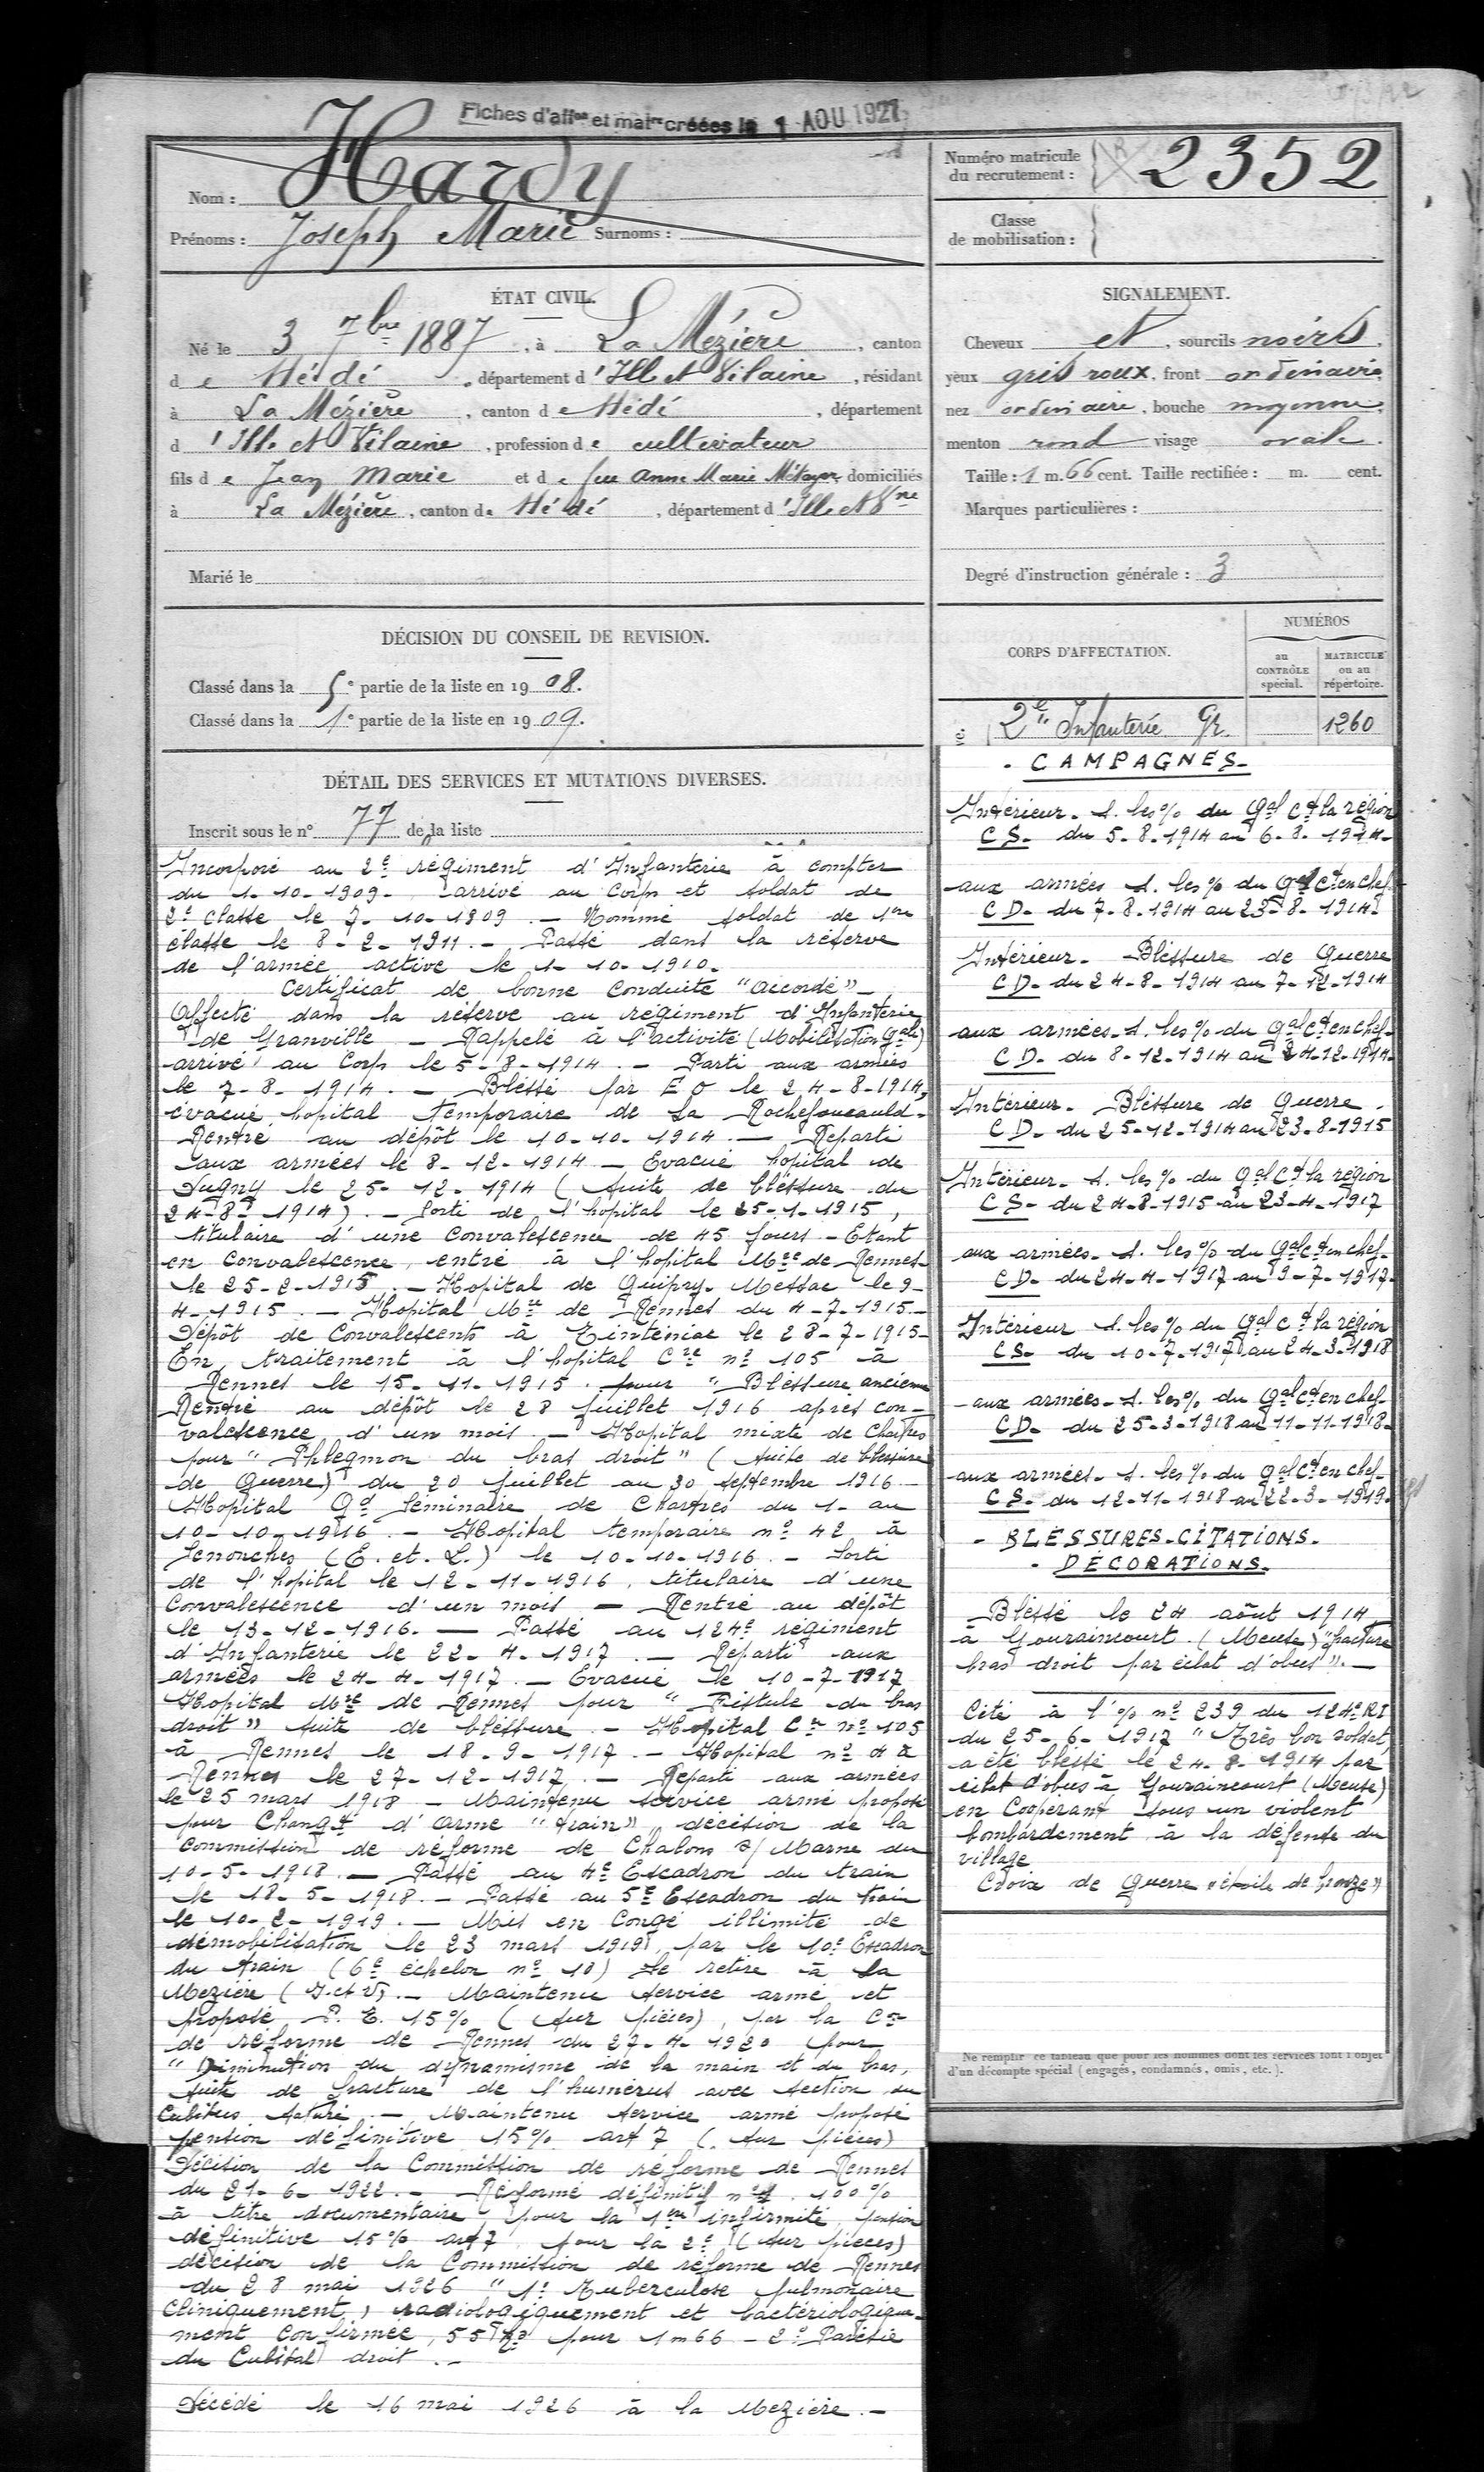 Fiches d'aff⁰ⁿ et mat⁰ créées le 1 AOU 1927
Nom : Hardy
Prénoms : Joseph Marie Surnoms :
Numéro matricule du recrutement : 2352
Classe de mobilisation :
ÉTAT CIVIL.
Né le 3 7bre 1887, à La Mézière, canton
d e Hédé, département d'Ille et Vilaine, résidant
à La Mézière, canton d e Hédé, département
d'Ille et Vilaine, profession d e cultivateur
fils d e Jean Marie et d e feu Anne Marie Métayer, domiciliés
à La Mézière, canton de Hédé, département d'Ille et Vne
Marié le
SIGNALEMENT.
Cheveux et, sourcils noirs,
yeux gris roux, front ordinaire,
nez ordinaire, bouche moyenne,
menton rond visage ovale.
Taille : 1 m. 66 cent. Taille rectifiée : m. cent.
Marques particulières :
Degré d'instruction générale : 3
DÉCISION DU CONSEIL DE REVISION.
Classé dans la 5e partie de la liste en 1908.
Classé dans la 1e partie de la liste en 1909.
CORPS D'AFFECTATION.
NUMÉROS
au CONTRÔLE spécial.
MATRICULE ou au répertoire.
2e Infanterie Gr. 1260
DÉTAIL DES SERVICES ET MUTATIONS DIVERSES.
Inscrit sous le n° 77 de la liste
Incorporé au 2e régiment d'Infanterie à compter
du 1-10-1909. arrivé au Corps et soldat de
2e classe le 7-10-1909. - Nommé soldat de 1re
classe le 8-2-1911. - Passé dans la réserve
de l'armée active le 1-10-1910.
Certificat de bonne conduite "accordé"-
Affecté dans la réserve au régiment d'Infanterie
de Granville - Rappelé à l'activité (Mobilisation Gale)
arrivé au Corps le 5-8-1914. - Parti aux armées
le 7-8-1914. - Blessé par E O le 24-8-1914,
évacué hopital temporaire de La Rochefoucauld-
Rentré au dépôt le 10-10-1914. - Reparti
aux armées le 8-12-1914 - Evacué hopital de
Dugny le 25-12-1914 (suite de blessure du
24-8-1914). - Sorti de l'hopital le 25-1-1915,
titulaire d'une convalescence de 45 jours - Etant
en convalescence, entré à l'hopital Mre de Rennes-
le 25-2-1915. - Hopital de Guipry-Messac le 9-
4-1915. - Hopital Mre de Rennes du 4-7-1915-
Dépôt de Convalescents à Tinténiac le 28-7-1915-
En traitement à l'hopital Cre n° 105 à
Rennes le 15-11-1915. pour "Blessure ancienne
Rentré au dépôt le 28 juillet 1916 après con-
valescence d'un mois - Hopital mixte de Chartres
pour "Phlegmon du bras droit" (suite de blessure
de Guerre) du 20 juillet au 30 septembre 1916-
Hopital Gd Séminaire de Chartres du 1- au
10-10-1916. - Hopital temporaire n° 42 à
Senonches (E. et. L.) le 10-10-1916. - Sorti
de l'hopital le 12-11-1916, titulaire d'une
Convalescence d'un mois - Rentré au dépôt
le 13-12-1916. - Passé au 124e régiment
d'Infanterie le 22-4-1917. - Reparti aux
armées le 24-4-1917. - Evacué le 10-7-1917
Hopital Mre de Rennes pour "Fistule du bras
droit" suite de blessure - Hopital Cre n° 105
à Rennes le 18-9-1917. - Hopital n° 4 à
Rennes le 27-12-1917. - Reparti aux armées
le 25 mars 1918 - Maintenu service armé proposé
pour Changt d'arme "train" décision de la
Commission de réforme de Chalons s/ Marne du
10-5-1918. - Passé au 4e Escadron du train
le 18-5-1918. - Passé au 5e Escadron du train
le 10-2-1919. - Mis en Congé illimité de
démobilisation le 23 mars 1919, par le 10e Escadron
du train (6e échelon n° 10) Se retire à La
Mézière (I. et V). - Maintenu service armé et
proposé P. E. 15% (sur pièces), par la Con
de réforme de Rennes du 27-4-1920 pour
"Diminution du dynamisme de la main et du bras,
suite de fracture de l'humérus avec section du
Cubitus suturé. - Maintenu service armé proposé
pension définitive 15% art 7 (sur pièces)
Décision de la Commission de réforme de Rennes
du 21-6-1922. - Réformé définitif n° 1. 100%
à titre documentaire, pour la 1re infirmité, pension
définitive 15% art 7 pour la 2e (sur pièces)
décision de la Commission de réforme de Rennes
du 28 mai 1926 "1° Tuberculose pulmonaire
Cliniquement, radiologiquement et bactériologique-
ment confirmée, 55 Ko pour 1m66 - 2° Parésie
du Cubital droit. -
Décédé le 16 mai 1926 à la Mézière. -
- CAMPAGNES -
Intérieur. s. les % du Gal Ct la région
CS- du 5-8-1914 au 6-8-1914-
aux armées s. les % du Gal Ct en chef-
CD- du 7-8-1914 au 23-8-1914.
Intérieur- Blessure de Guerre
CD- du 24-8-1914 au 7-12-1914
aux armées- s. les % du Gal Ct en chef-
CD- du 8-12-1914 au 24-12-1914-
Intérieur- Blessure de guerre.
CD- du 25-12-1914 au 23-8-1915
Intérieur- s. les % du Gal Ct la région
CS- du 24-8-1915 au 23-4-1917
aux armées- s. les % du Gal Ct en chef-
CD- du 24-4-1917 au 9-7-1917-
Intérieur s. les % du Gal Ct la région
CS- du 10-7-1917 au 24-3-1918
- aux armées- s. les % du Gal Ct en chef-
CD- du 25-3-1918 au 11-11-1918-
aux armées- s. les % du Gal Ct en chef-
CS- du 12-11-1918 au 22-3-1919-
- BLESSURES-CITATIONS -
- DÉCORATIONS -
Blessé le 24 août 1914
à Gouraincourt (Meuse) "fracture
bras droit par éclat d'obus". -
Cité à l'% n° 239 du 124e RI
du 25-6-1917 "Très bon soldat,
a été blessé le 24-8-1914 par
éclat d'obus à Gouraincourt (Meuse)
en Coopérant sous un violent
bombardement à la défense du
village
Croix de Guerre "étoile de bronze"
Ne remplir ce tableau que pour les hommes dont les services font l'objet
d'un décompte spécial (engagés, condamnés, omis, etc.).